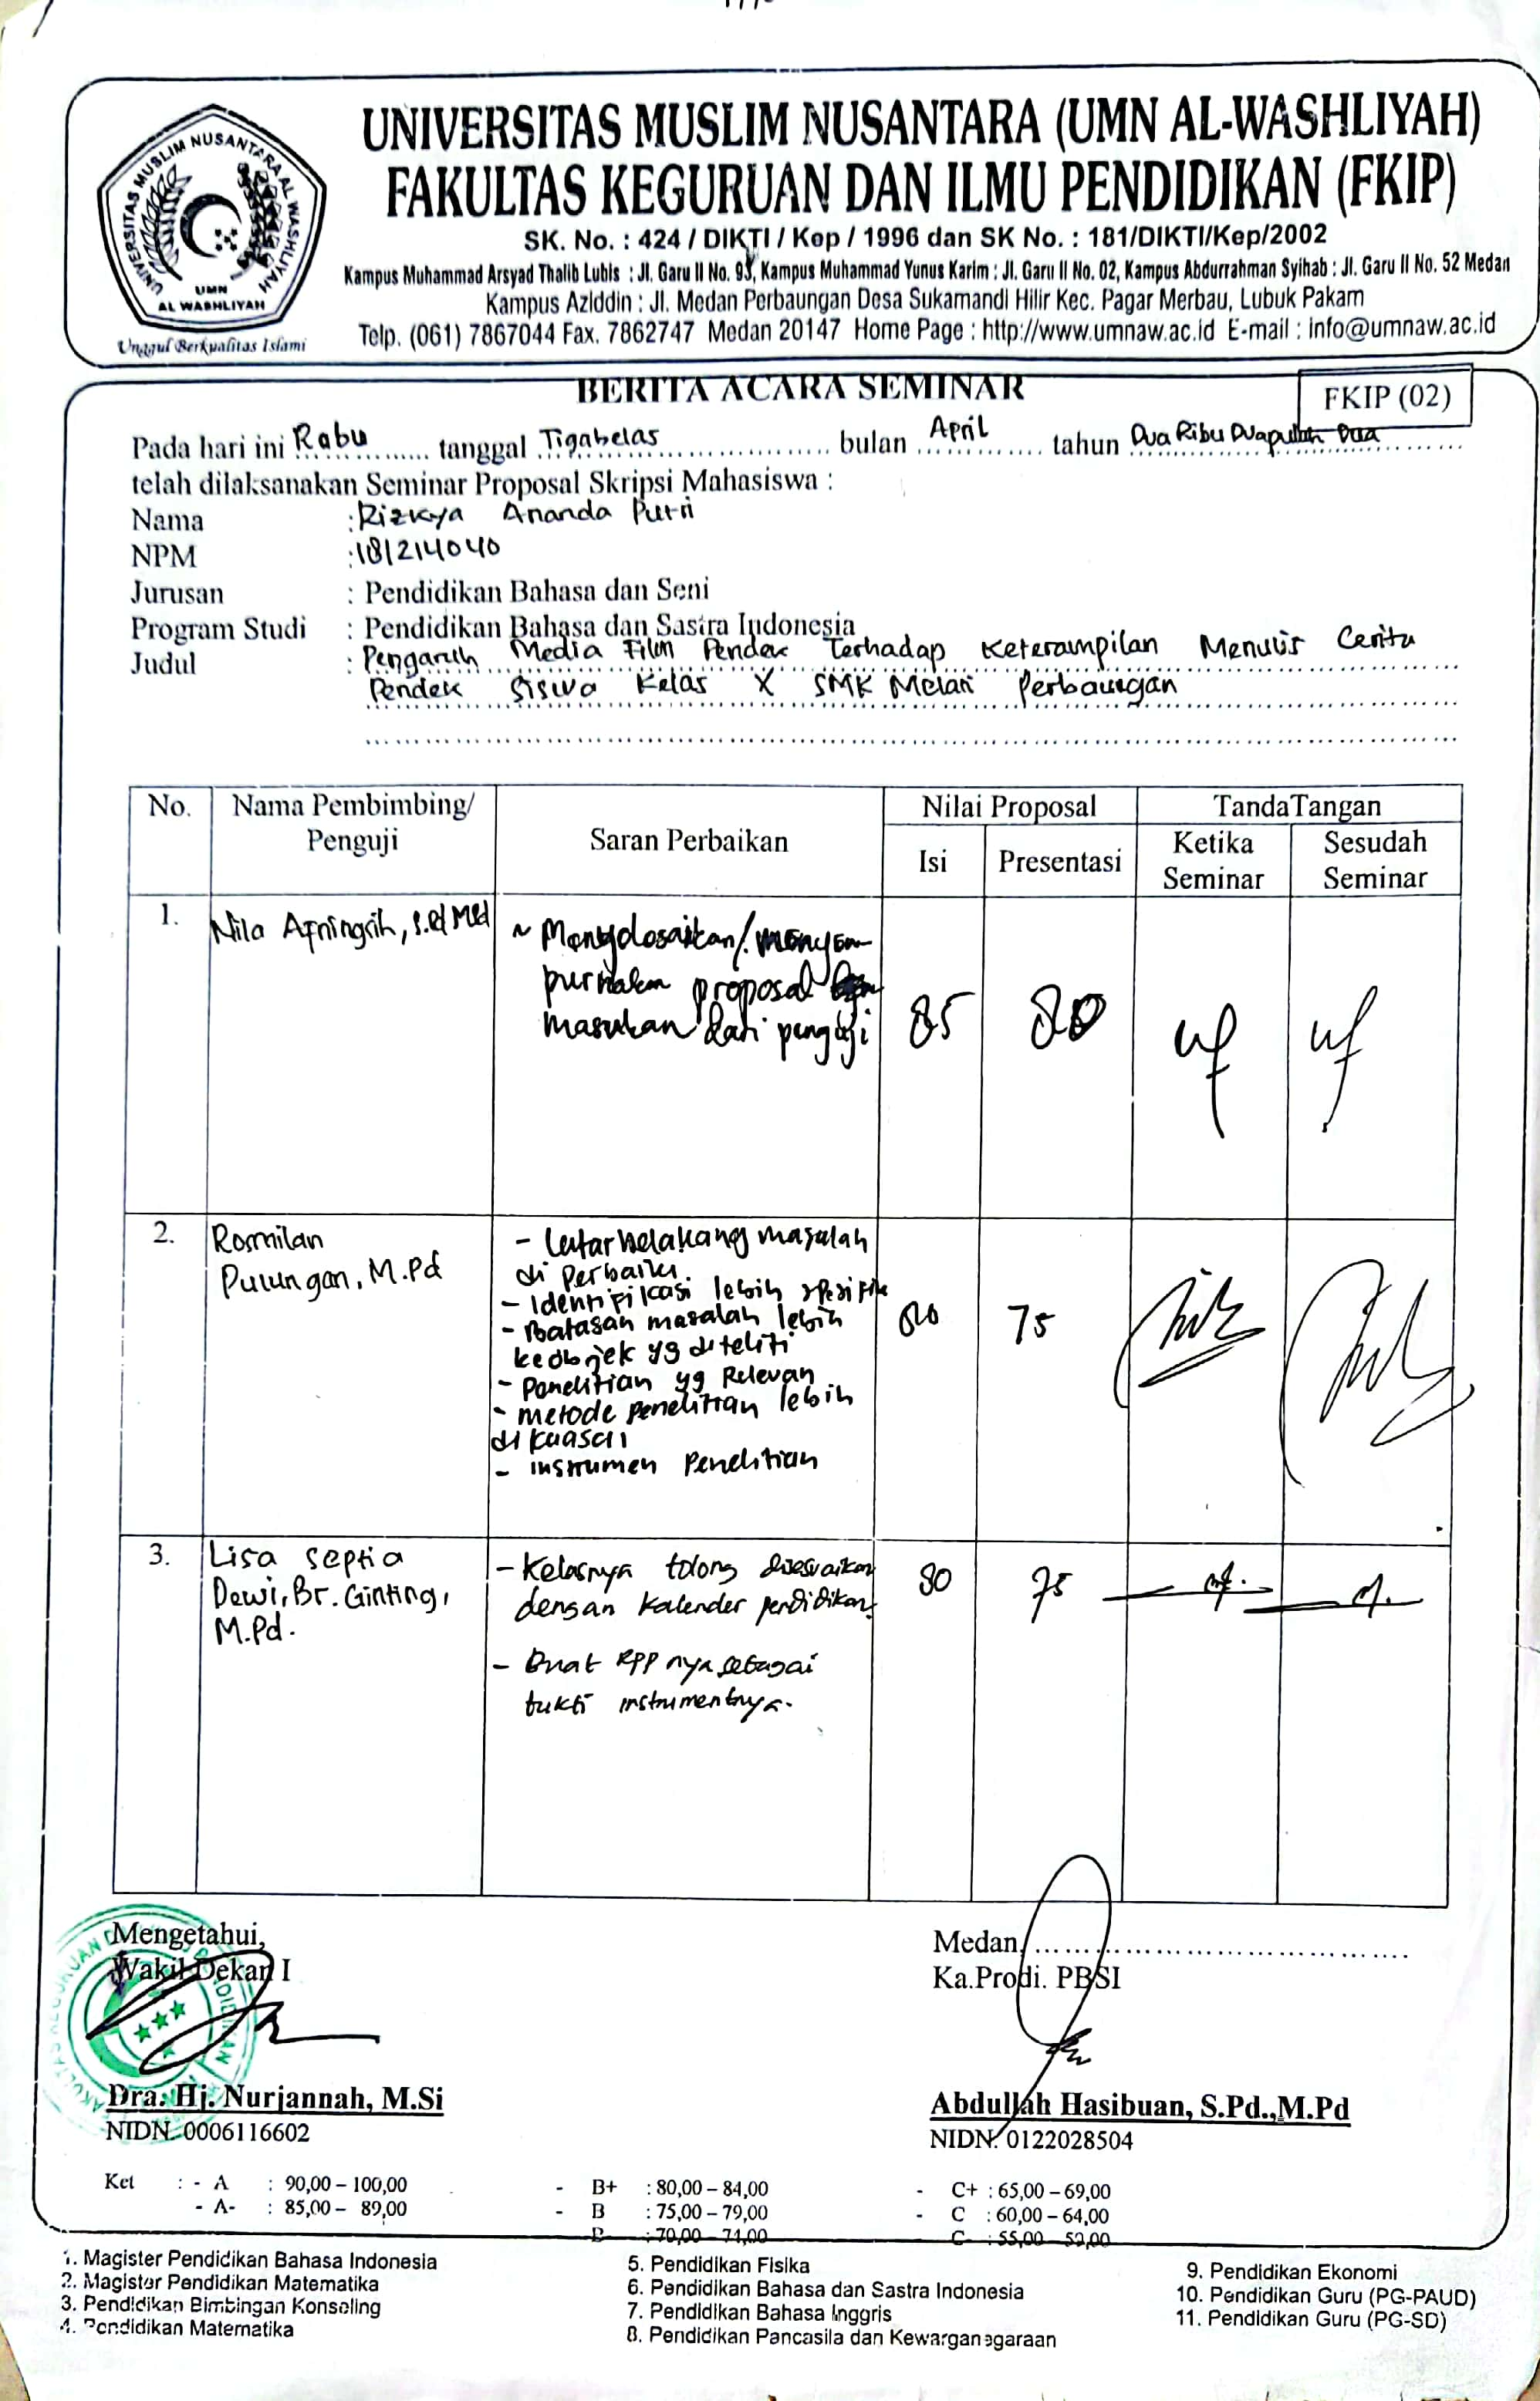 UNIVERSITAS MUSLIM NUSANTARA AL WASHLIYAH
UMN
AL WASHLIYAH
Unggul Berkualitas Islami
UNIVERSITAS MUSLIM NUSANTARA (UMN AL-WASHLIYAH)
FAKULTAS KEGURUAN DAN ILMU PENDIDIKAN (FKIP)
SK. No. : 424 / DIKTI / Kep / 1996 dan SK No. : 181/DIKTI/Kep/2002
Kampus Muhammad Arsyad Thalib Lubis : Jl. Garu II No. 93, Kampus Muhammad Yunus Karim : Jl. Garu II No. 02, Kampus Abdurrahman Syihab : Jl. Garu II No. 52 Medan
Kampus Aziddin : Jl. Medan Perbaungan Desa Sukamandi Hilir Kec. Pagar Merbau, Lubuk Pakam
Telp. (061) 7867044 Fax. 7862747 Medan 20147 Home Page : http://www.umnaw.ac.id E-mail : info@umnaw.ac.id
BERITA ACARA SEMINAR
FKIP (02)
Pada hari ini Rabu tanggal Tigabelas bulan April tahun Dua Ribu Duapuluh Dua
telah dilaksanakan Seminar Proposal Skripsi Mahasiswa :
Nama : Rizkya Ananda Putri
NPM : 181214040
Jurusan : Pendidikan Bahasa dan Seni
Program Studi : Pendidikan Bahasa dan Sastra Indonesia
Judul : Pengaruh Media Film Pendek Terhadap Keterampilan Menulis Cerita
Pendek Siswa Kelas X SMK Melati Perbaungan
No. Nama Pembimbing/ Penguji Saran Perbaikan Nilai Proposal TandaTangan
Isi Presentasi Ketika Seminar Sesudah Seminar
1. Nila Afningsih, S.Pd M.Pd
~ Menyelesaikan/menyem-
purnakan proposal
masukan dari penguji
85 80
2. Romilan
Pulungan, M.Pd
- Latar belakang masalah
di perbaiki.
- Identifikasi lebih spesifik
- Batasan masalah lebih
keobjek yg diteliti
- Penelitian yg Relevan
- metode penelitian lebih
di kuasai
- instrumen Penelitian
80 75
3. Lisa Septia
Dewi, Br. Ginting,
M.Pd.
- Kelasnya tolong disesuaikan
dengan kalender pendidikan.
- Buat RPP nya sebagai
bukti instrumentnya.
80 75
Mengetahui,
Wakil Dekan I
Dra. Hj. Nurjannah, M.Si
NIDN. 0006116602
Medan,
Ka.Prodi. PBSI
Abdullah Hasibuan, S.Pd.,M.Pd
NIDN. 0122028504
Ket : - A : 90,00 – 100,00 - B+ : 80,00 – 84,00 - C+ : 65,00 – 69,00
- A- : 85,00 – 89,00 - B : 75,00 – 79,00 - C : 60,00 – 64,00
1. Magister Pendidikan Bahasa Indonesia
2. Magister Pendidikan Matematika
3. Pendidikan Bimbingan Konseling
4. Pendidikan Matematika
5. Pendidikan Fisika
6. Pendidikan Bahasa dan Sastra Indonesia
7. Pendidikan Bahasa Inggris
8. Pendidikan Pancasila dan Kewarganegaraan
9. Pendidikan Ekonomi
10. Pendidikan Guru (PG-PAUD)
11. Pendidikan Guru (PG-SD)